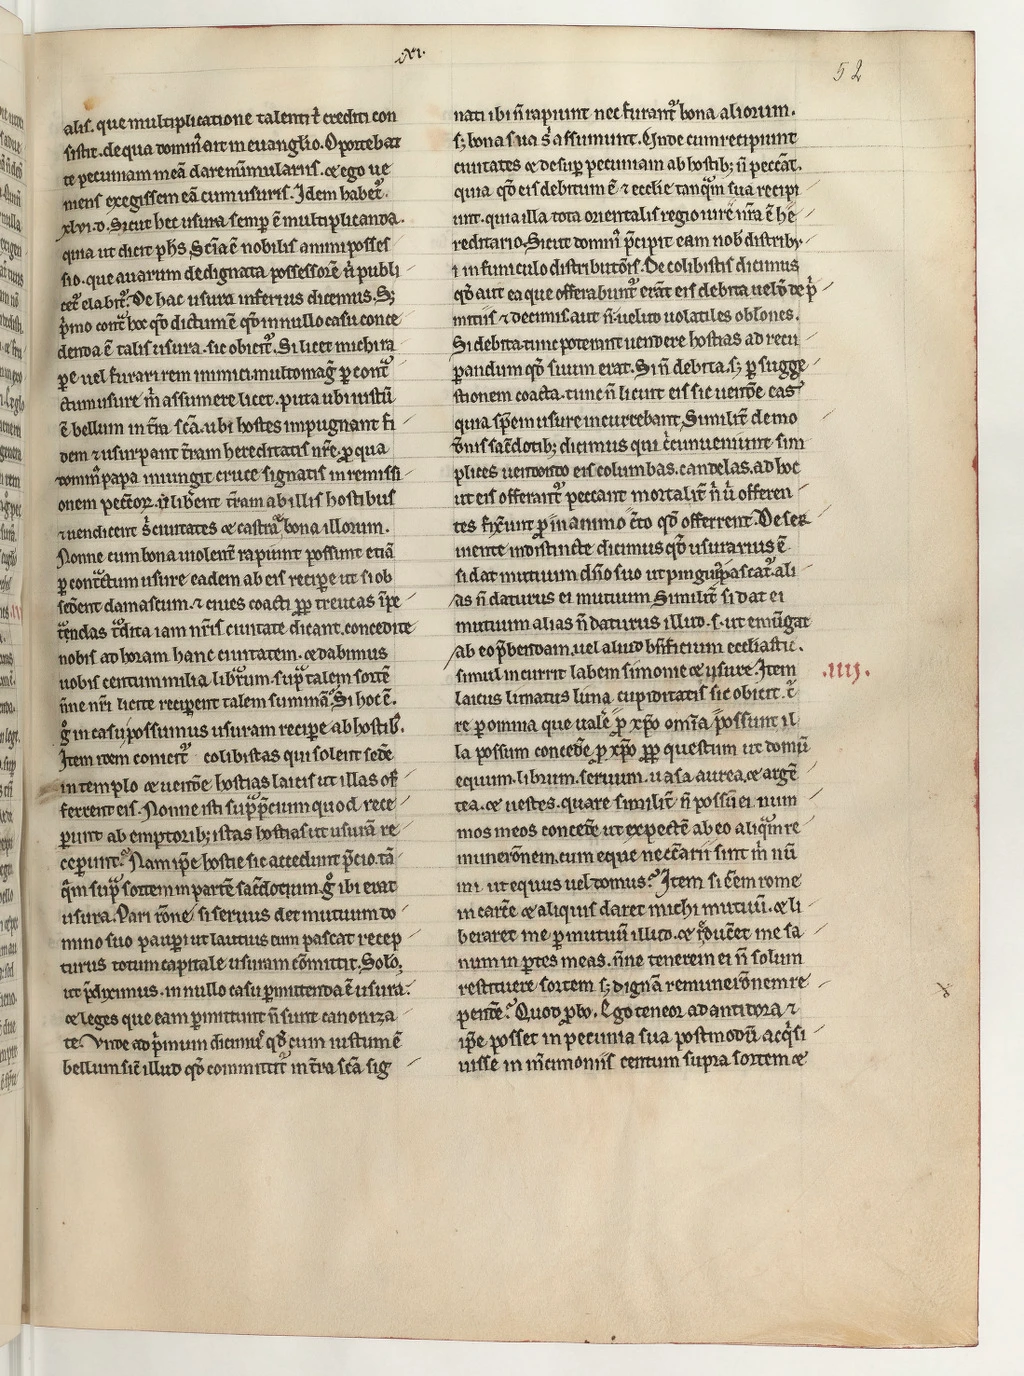 .xi.
52
alis. que multiplicatione talenti t̄ crediti con
sistit. de qua domin᷒ ait in euanglio. Oportebat
te pecuniam meā dare nūmulariis. ⁊ ego ue
niens exegissem eā cum usuris. Idem habet᷒.
xlvi. d. Sicut hec usura semp ē multiplicanda.
quia ut dicit ph̄s. Sciā ē nobilis animi posses
sio. que auarum dedignata possessorē n̄ publi
cet᷒ elabit᷒. De hac usura inferius dicemus. S;
p̄mo cont̄ hoc qd̄ dictum ē qd̄ in nullo casu conce
denda ē talis usura. sic obicit᷒. Si licet michi ra
pe uel furari rem inimici. multo maḡ p cont̄
ctum usure m̄ assumere licet. puta ubi iustū
ē bellum in t̄ra sc̄ā. ubi hostes impugnant fi
dem ⁊ usurpant t̄ram hereditatis nr̄e. p qua
domin᷒ papa iniungit cruce signatis in remissi
onem pecc̄oꝝ. ut lib̄ent t̄ram ab illis hostibus
⁊ uendicent s̄ ciuitates ⁊ castra, bona illorum.
Nonne cum bona uiolent̄ rapiunt possunt etiā
p cont̄ctum usure eadem ab eis recipe ut si ob
sed̄ent damascum. ⁊ ciues coacti pp treucas īpe
t̄ndas t̄dita iam nr̄is ciuitate dicant. concedite
nobis ad horam hanc ciuitatem. ⁊ dabimus
uobis centum milia librarum. sup̄ talem sortē
n̄ne nr̄i licite recipent talem summā. Si hoc ē.
g̊ in casu possumus usuram recipe ab hostib᷒.
Item idem coniicit᷒ colibistas qui solent sed̄e
in templo ⁊ uend̄e hostias laicis ut illas of
ferrent eis. Nonne isti sup̄ p̄cium quod rece
perunt ab emptorib; istas hostias ut usurā re
ceperunt. Nam ip̄e hostie sic accedunt p̄cio. tā
q̄m sup̄ sortem in partē sac̄dotum. g̊ ibi erat
usura. Pari rōne si seruus det mutuum do
mino suo paupi ut lautius eum pascat recep
turus totum capitale usuram cōmittit. Solō;
ut p̄diximus. in nullo casu p̄mittenda ē usura.
⁊ leges que eam p̄mittunt n̄ sunt canoniza
te. Vnde ad p̄mum dicimus qd̄ cum iustum ē
bellum sic̄ illud qd̄ committit᷒ in t̄ra sc̄ā sig
nati ibi n̄ rapiunt nec furant᷒ bona aliorum.
s; bona sua s̄ assumunt. Vnde cum recipiunt
ciuitates ⁊ desup pecuniam ab hostib; n̄ peccāt.
quia qd̄ eis debitum ē ⁊ ecclie tanq̄m sua recipi
unt. quia illa tota orientalis regio iure nr̄a ē he
reditario. Sicut domin᷒ p̄cipit eam nob̄ distribu
i in funiculo distributōis. De colibistis dicimus
qd̄ aut ea que offerabunt᷒ erāt eis debita uelud de p̄
mitiis ⁊ decimis. aut n̄ uelud uolatiles oblōnes.
Si debita. tunc poterant uendere hostias ad recu
pandum qd̄ suum erat. Si n̄ debita. s; p sugge
stionem coacta. tunc n̄ licuit eis sic uend̄e eas
quia sp̄em usure incurrebant. Similit̄ de mo
d̄nis sac̄dotib; dicimus qui c̄cunueniunt sim
plices uendendo eis columbas. candelas. ad hoc
ut eis offerant᷒ peccant mortalit̄ n̄ ū offeren
tes fix̄unt p in animo ē̄to qd̄ offerrent. De ser
uiente indistincte dicimus qd̄ usurarius ē
si dat mutuum dn̄o suo ut pinguius pascat᷒. ali
as n̄ daturus ei mutuum. Similit̄ si dat ei
mutuum alias n̄ daturus illud. s. ut emūgat
ab eo p̄bendam. uel aliud bn̄ficium ecclīasticū.
simul incurrit labem simonie ⁊ usure. Item
.iiij.
laicus limatus luna cupiditatis sic obicit. c̄
re pomma que ualē p xp̄o om̄ia possunt il
la possum conced̄e p xp̄o pp questum ut domū
equum. librum. seruum. uasa aurea. ⁊ argē
tea. ⁊ uestes. quare similit̄ n̄ possū ei num
mos meos conced̄e ut expectē ab eo aliq̄m re
munerōnem. cum eque nec̄cārii sint m̄ nū
mi. ut equus uel domus. Item si c̄em rome
in carc̄e ⁊ aliquis daret michi mutuū. ⁊ li
beraret me p mutuū illud. ⁊ ꝯduc̄et me sa
num in ptes meas. n̄ne tenerem ei n̄ solum
restituere sortem s; dignā remunerōnem re
pend̄e. Quod pbo. Ego teneor ad antidora ⁊
ip̄e posset in pecunia sua postmodū acq̄si
uisse in nūmoniis centum supra sortem ⁊